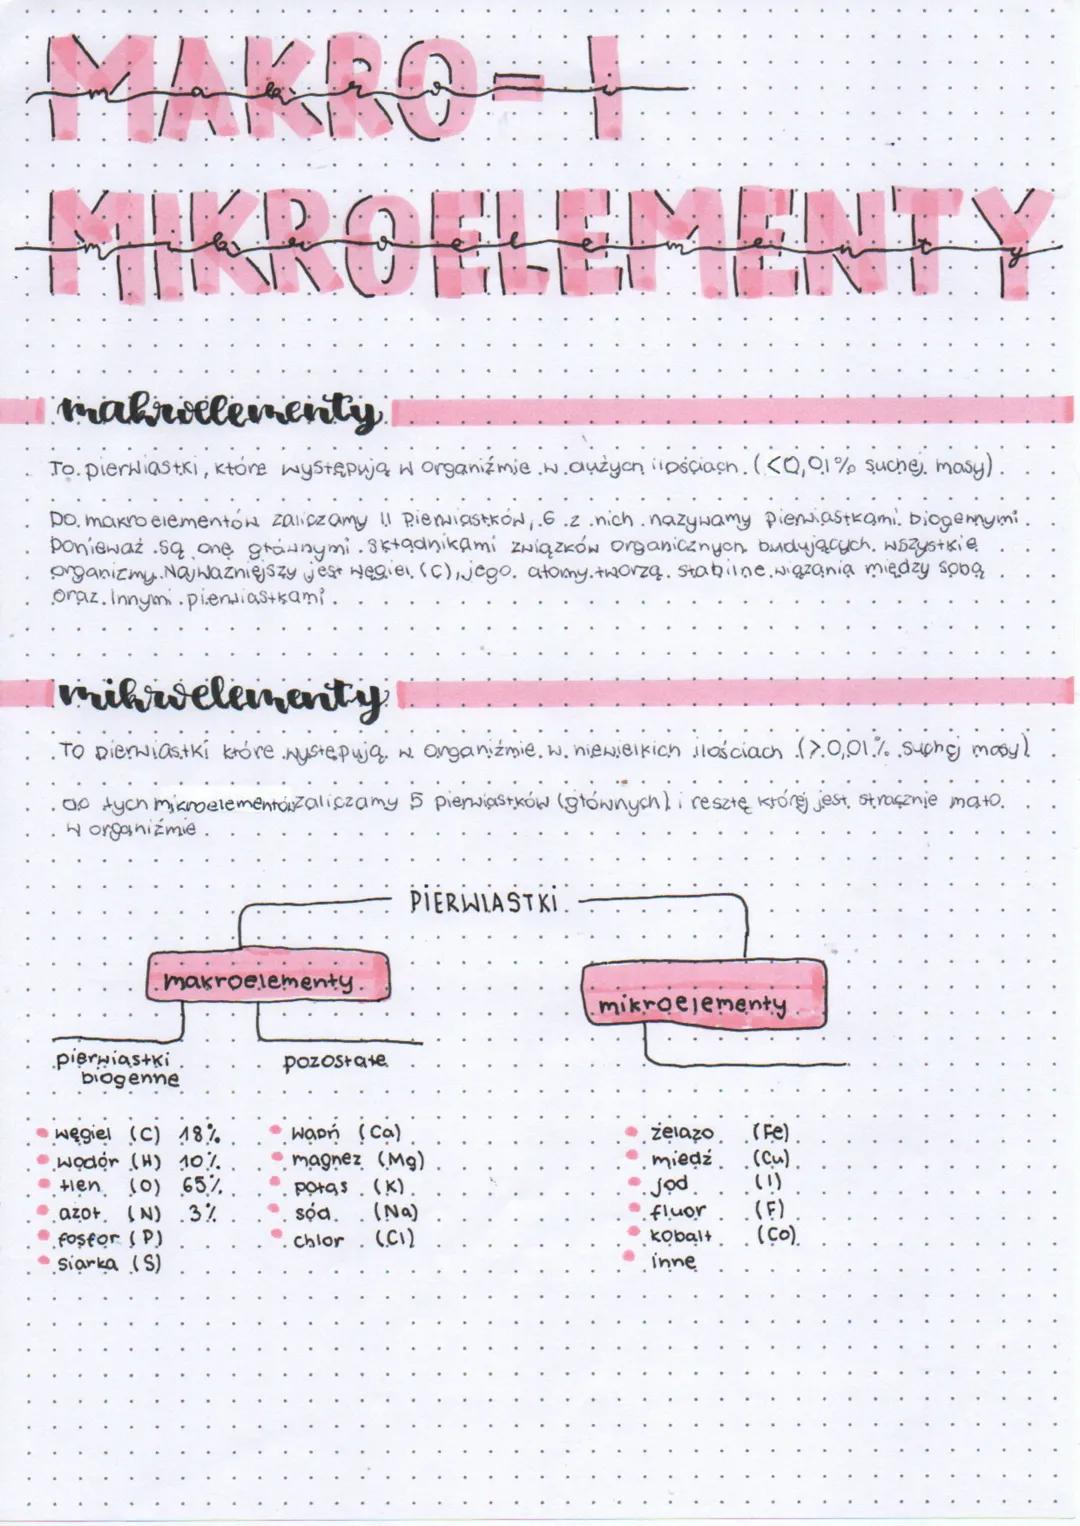 MAKRO- I
makro - i
MIKROELEMENTY
mikroelementy
makroelementy
To pierwiastki, które występują w organiźmie w dużych ilościach (<0,01% suchej masy).
Do makroelementów zaliczamy 11 pierwiastków, 6 z nich nazywamy pierwiastkami biogennymi
ponieważ są one głównymi składnikami związków organicznych budujących wszystkie
organizmy. Najważniejszy jest węgiel (C), jego atomy tworzą stabilne wiązania między sobą
oraz innymi pierwiastkami.
mikroelementy
To pierwiastki które występują w organiźmie w niewielkich ilościach (>0,01% suchej masy)
do tych mikroelementów zaliczamy 5 pierwiastków (głównych) i resztę której jest strasznie mało
w organiźmie.
PIERWIASTKI
makroelementy
mikroelementy
pierwiastki
biogenne
pozostałe
węgiel (C) 18%
wodór (H) 10%
tlen (O) 65%
azot (N) 3%
fosfor (P)
siarka (S)
wapń (Ca)
magnez (Mg)
potas (K)
sód (Na)
chlor (Cl)
żelazo (Fe)
miedź (Cu)
jod (I)
fluor (F)
kobalt (Co)
inne